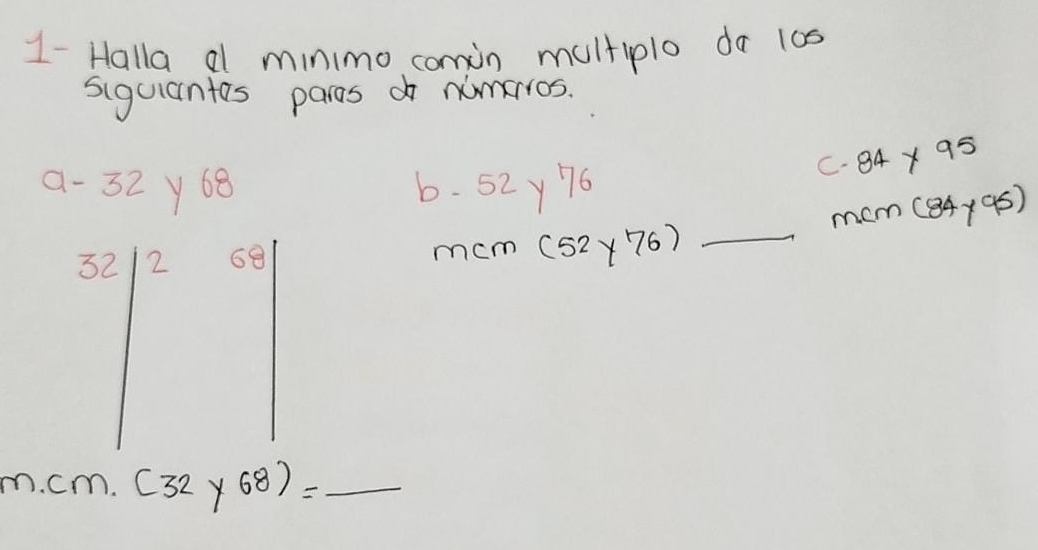 1- Halla el minimo común multiplo de los
siguientes pares de números.
a- 32 y 68
b - 52 y 76
c- 84 y 95
mcm (52 y 76) ____
mcm (84 y 95)
32 | 2 68 |
m.cm. (32 y 68) = ____